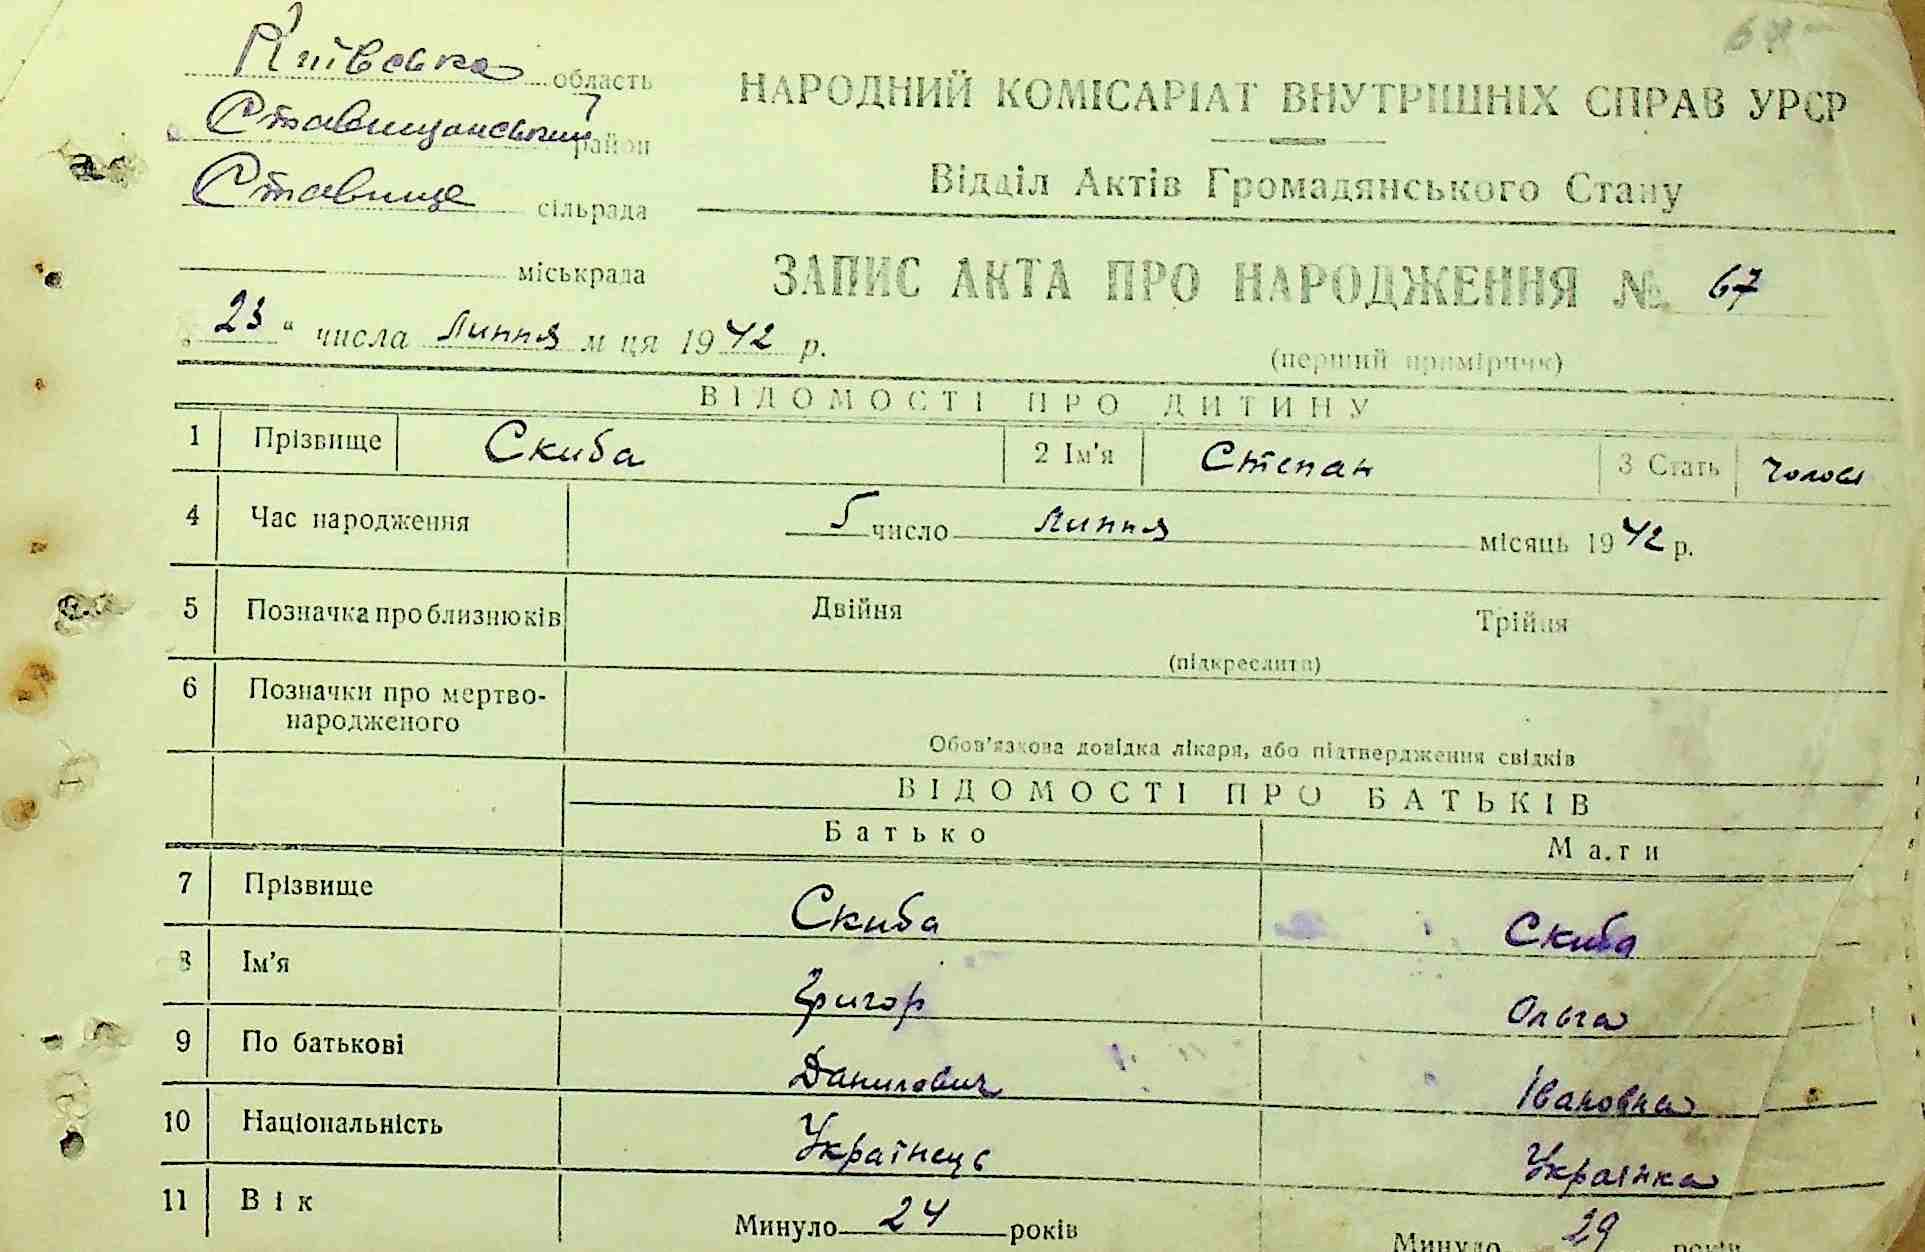 Київська область
Ставищанський район
Ставище сільрада
міськрада
НАРОДНИЙ КОМІСАРІАТ ВНУТРІШНІХ СПРАВ УРСР
Відділ Актів Громадянського Стану
ЗАПИС АКТА ПРО НАРОДЖЕННЯ № 67
(перший примірник)
„23“ числа липня м ця 1942 р.
ВІДОМОСТІ ПРО ДИТИНУ
1 Прізвище Скиба 2 Ім'я Степан 3 Стать чолов
4 Час народження 5 число липня місяць 1942 р.
5 Позначка про близнюків Двійня Трійня
(підкреслити)
6 Позначки про мертво-
народженого
Обов'язкова довідка лікаря, або підтвердження свідків
ВІДОМОСТІ ПРО БАТЬКІВ
Батько Мати
7 Прізвище Скиба Скиба
8 Ім'я Григор Ольга
9 По батькові Данилович Івановна
10 Національність Українець Українка
11 Вік Минуло 24 років Минуло 29 років